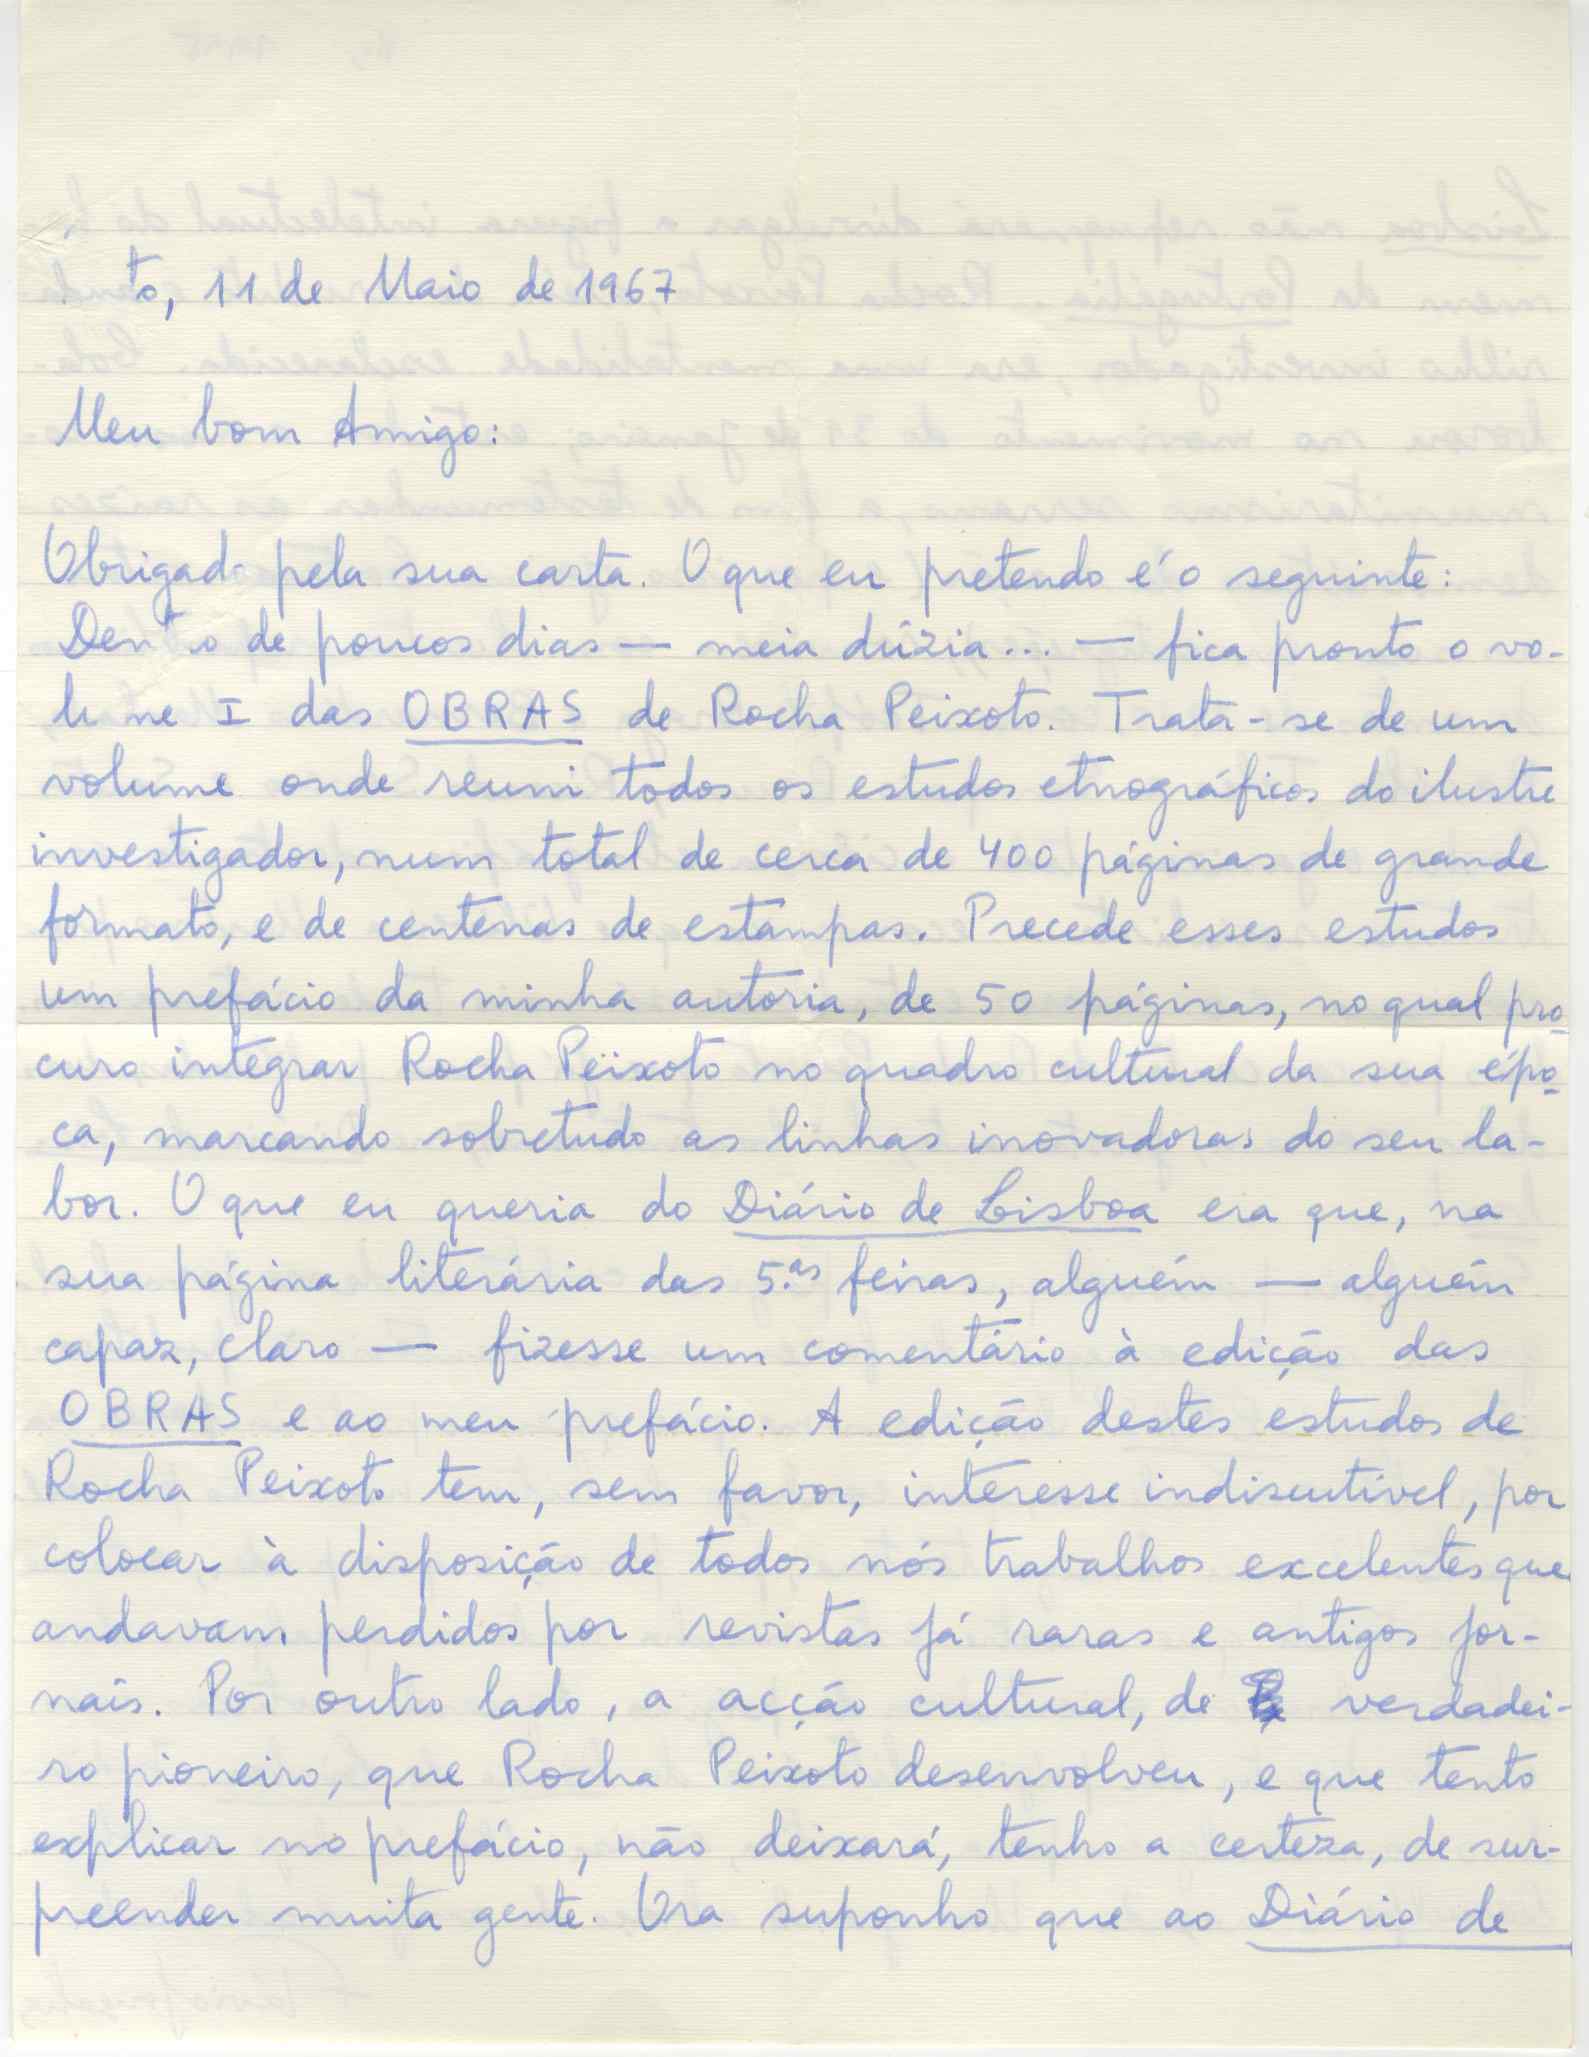 to, 11 de Maio de 1967
Meu bom Amigo:
Obrigado pela sua carta. O que eu pretendo é o seguinte:
Dentro de poucos dias — meia dúzia... — fica pronto o vo-
lume I das OBRAS de Rocha Peixoto. Trata-se de um
volume onde reuni todos os estudos etnográficos do ilustre
investigador, num total de cerca de 400 páginas de grande
formato, e de centenas de estampas. Precede esses estudos
um prefácio da minha autoria, de 50 páginas, no qual pro-
curo integrar Rocha Peixoto no quadro cultural da sua épo-
ca, marcando sobretudo as linhas inovadoras do seu la-
bor. O que eu queria do Diário de Lisboa era que, na
sua página literária das 5.as feiras, alguém — alguém
capaz, claro — fizesse um comentário à edição das
OBRAS e ao meu prefácio. A edição destes estudos de
Rocha Peixoto tem, sem favor, interesse indiscutível, por
colocar à disposição de todos nós trabalhos excelentes que
andavam perdidos por revistas já raras e antigos jor-
nais. Por outro lado, a acção cultural, de verdadei-
ro pioneiro, que Rocha Peixoto desenvolveu, e que tento
explicar no prefácio, não deixará, tenho a certeza, de sur-
preender muita gente. Ora suponho que ao Diário de